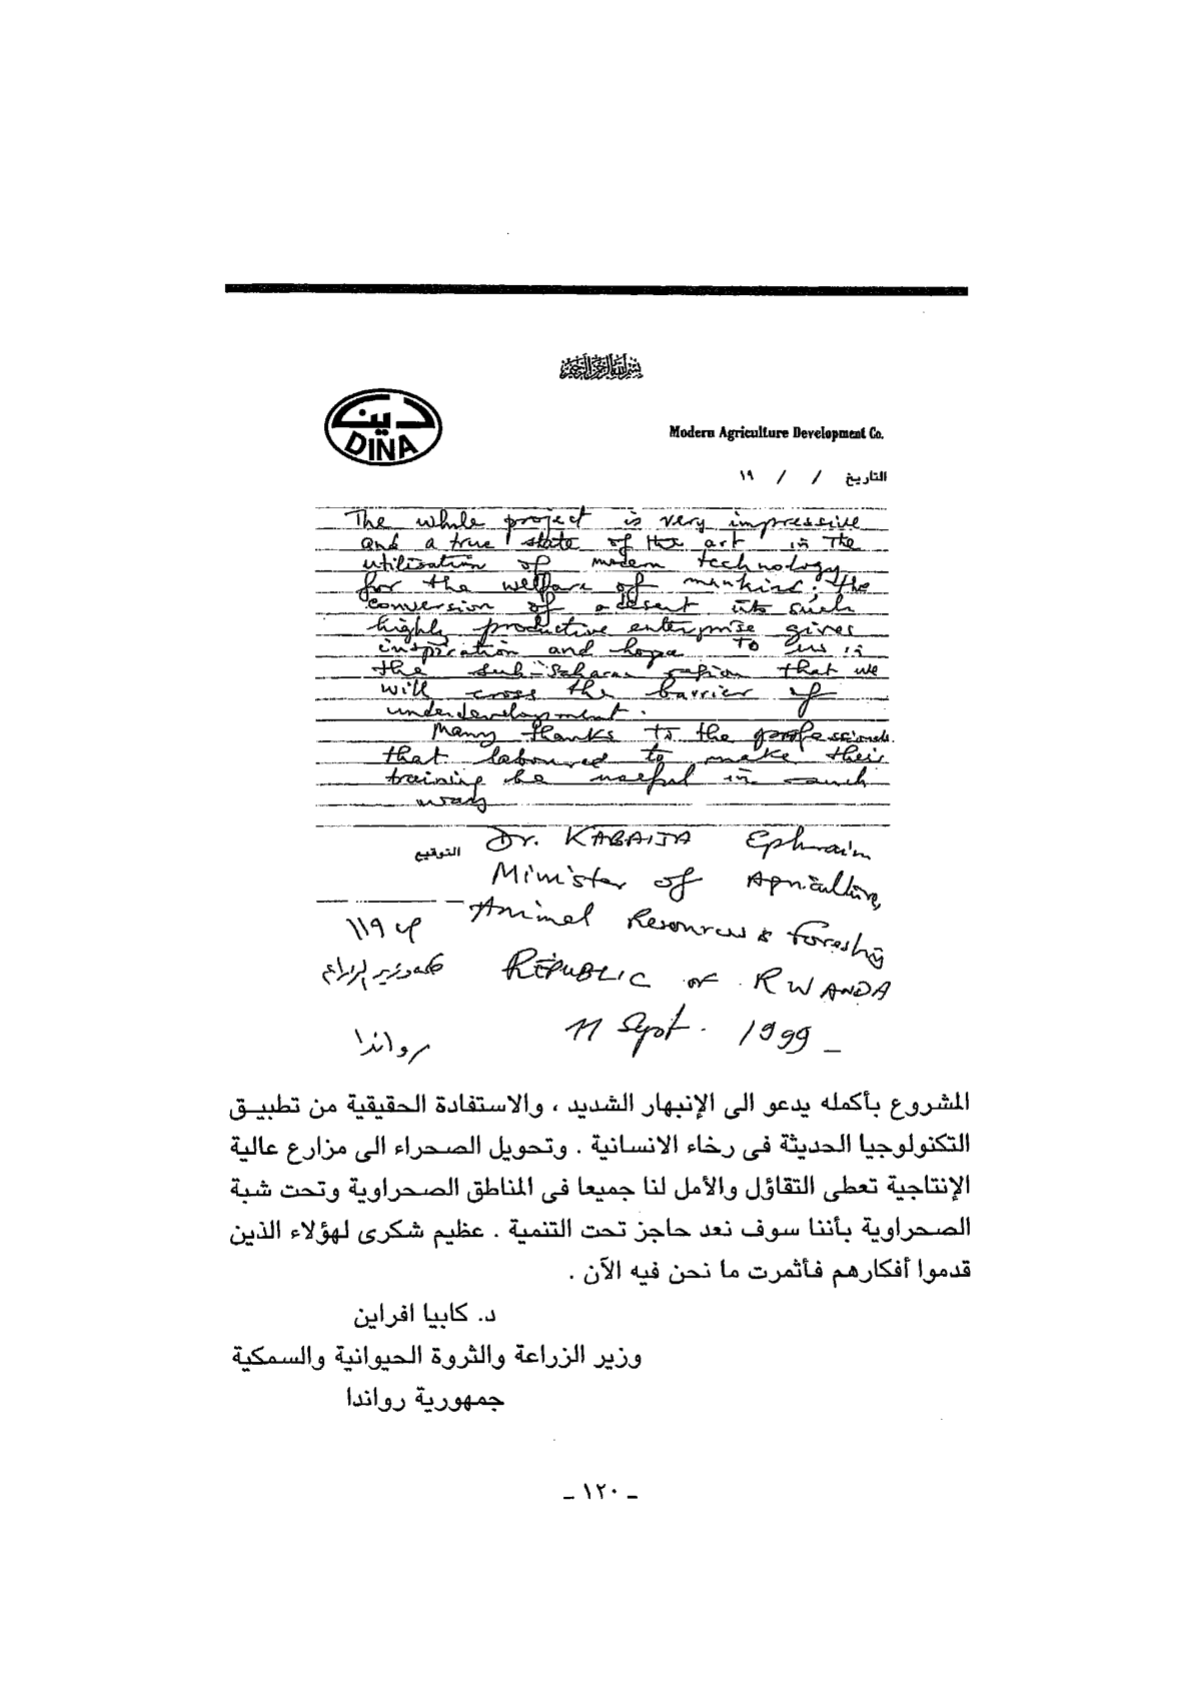 بسم الله الرحمن الرحيم
دينا
DINA
Modern Agriculture Development Co.
التاريخ / / ١٩
The whole project is very impressive
and a true state of the art in the
utilisation of modern technology
for the welfare of mankind. The
conversion of a desert into such
highly productive enterprise gives
inspiration and hope to us in
the sub-Saharan region that we
will cross the barrier of
underdevelopment.
Many thanks to the professionals
that laboured to make their
training be useful in such
way
Dr. KABAIJA Ephraim
التوقيع
Minister of Agriculture,
Animal Resources & Forestry
١١٩
REPUBLIC OF RWANDA
كلمة وزير الزراعة
11 Sept. 1999
رواندا
المشروع بأكمله يدعو الى الإنبهار الشديد ، والاستفادة الحقيقية من تطبيق
التكنولوجيا الحديثة فى رخاء الانسانية . وتحويل الصحراء الى مزارع عالية
الإنتاجية تعطى التقاؤل والأمل لنا جميعا فى المناطق الصحراوية وتحت شبة
الصحراوية بأننا سوف نعد حاجز تحت التنمية . عظيم شكرى لهؤلاء الذين
قدموا أفكارهم فأثمرت ما نحن فيه الآن .
د. كابيا افراين
وزير الزراعة والثروة الحيوانية والسمكية
جمهورية رواندا
ـ ١٢٠ ـ